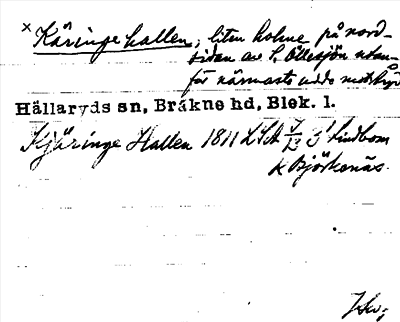 x Käringe hallen, liten holme på nord-
sidan av S. Öllesjön utan-
för närmaste udde mot
Hällaryds sn, Bräkne hd, Blek. l.
Kjäringe Hallen 1811 LSA 7/13 Lindbom
K Björkenäs.